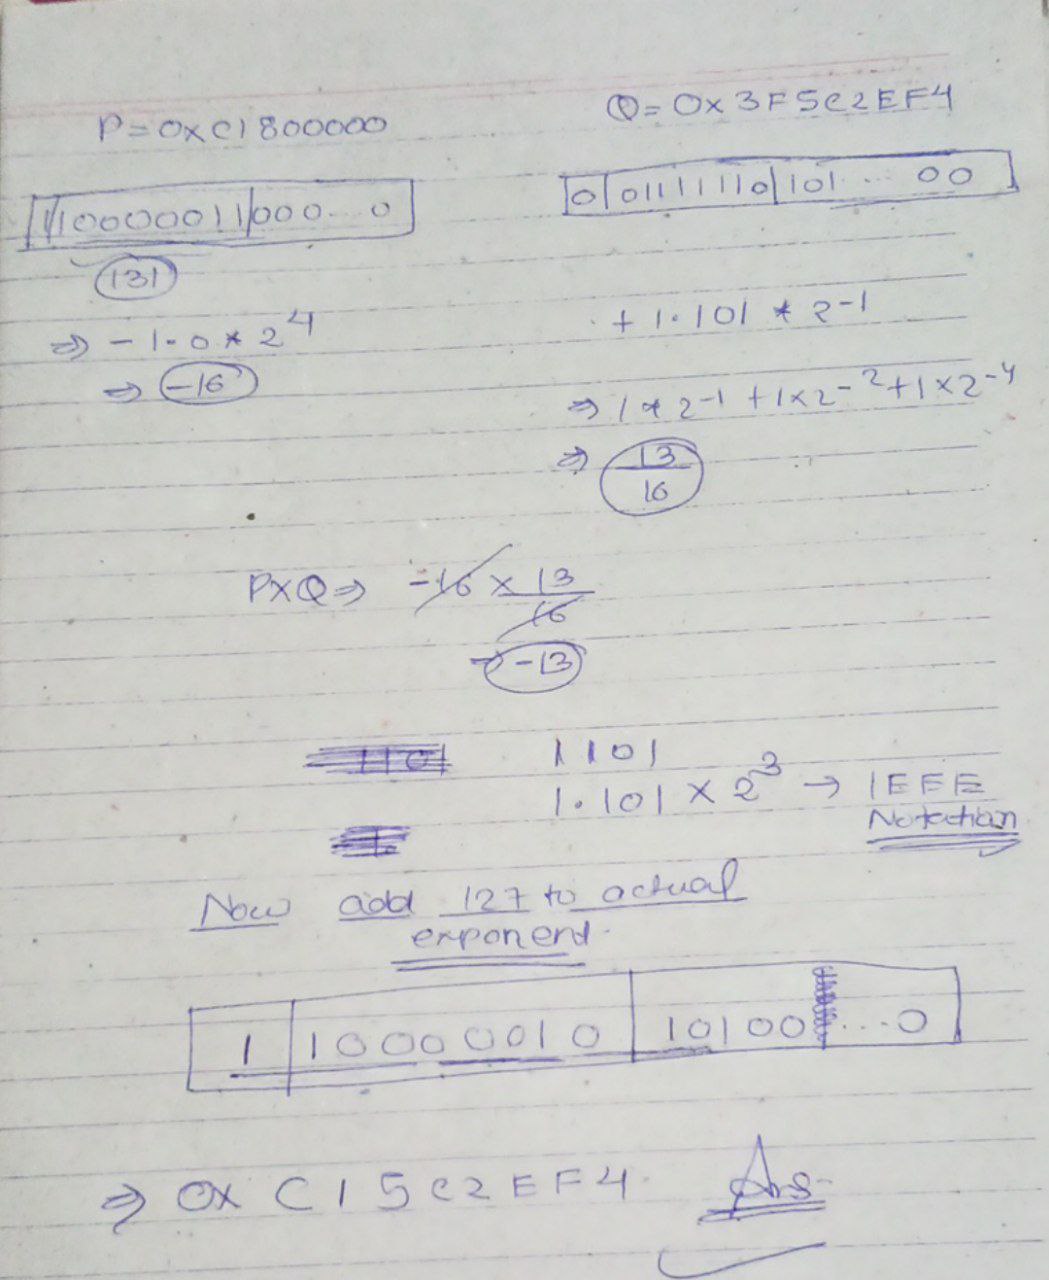 P=0xC1800000
Q=0x3F5C2EF4
1|10000011|000...0
0|01111110|101...00
131
⇒ -1.0*2^4
⇒ -16
+1.101*2^-1
⇒ 1*2^-1+1×2^-2+1×2^-4
⇒ 13/16
P×Q⇒ -16×13/16
→ -13
1101
1101
1.101×2^3 → IEEE
Notation
Now add 127 to actual
exponent.
1|10000010|10100...0
⇒ 0x C15C2EF4. Ans.